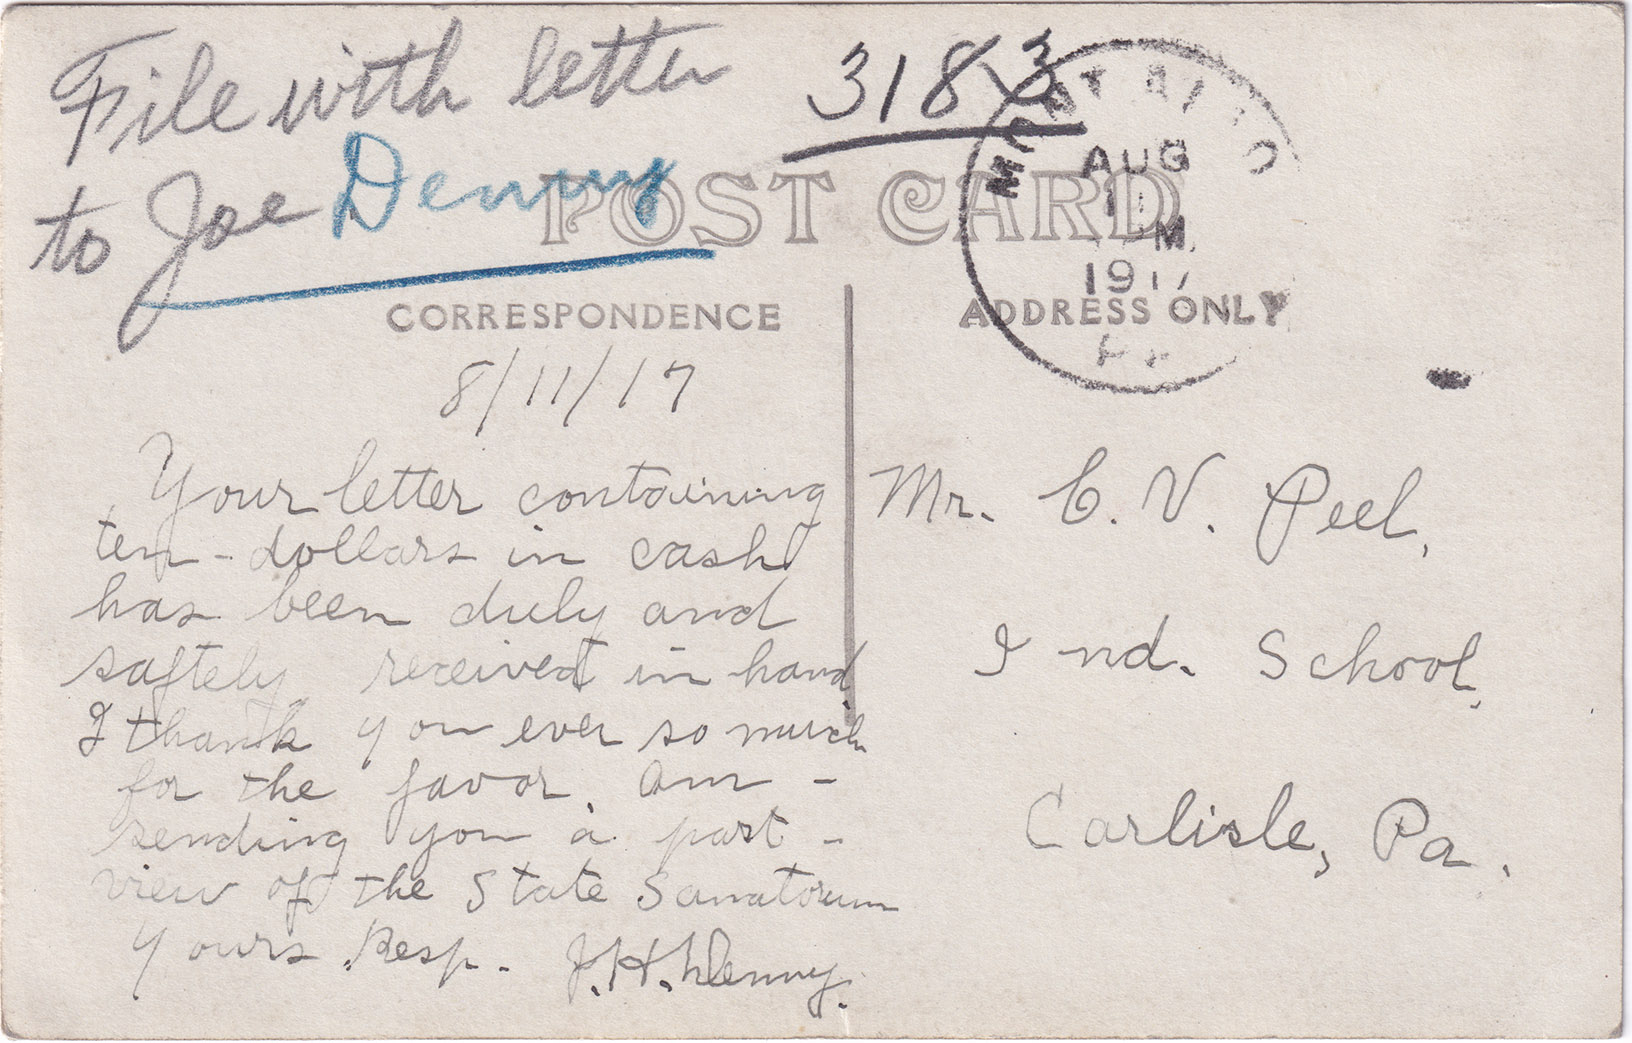 File with letter
to Joe Denny
3183
AUG
M.
191
POST CARD
CORRESPONDENCE
ADDRESS ONLY
8/11/17
Your letter containing
ten-dollars in cash
has been duly and
saftely received in hand
I thank you ever so much
for the favor. Am -
sending you a part -
view of the State Sanatorum
Yours Resp. J. H. Denny.
Mr. C. V. Peel,
Ind. School,
Carlisle, Pa.